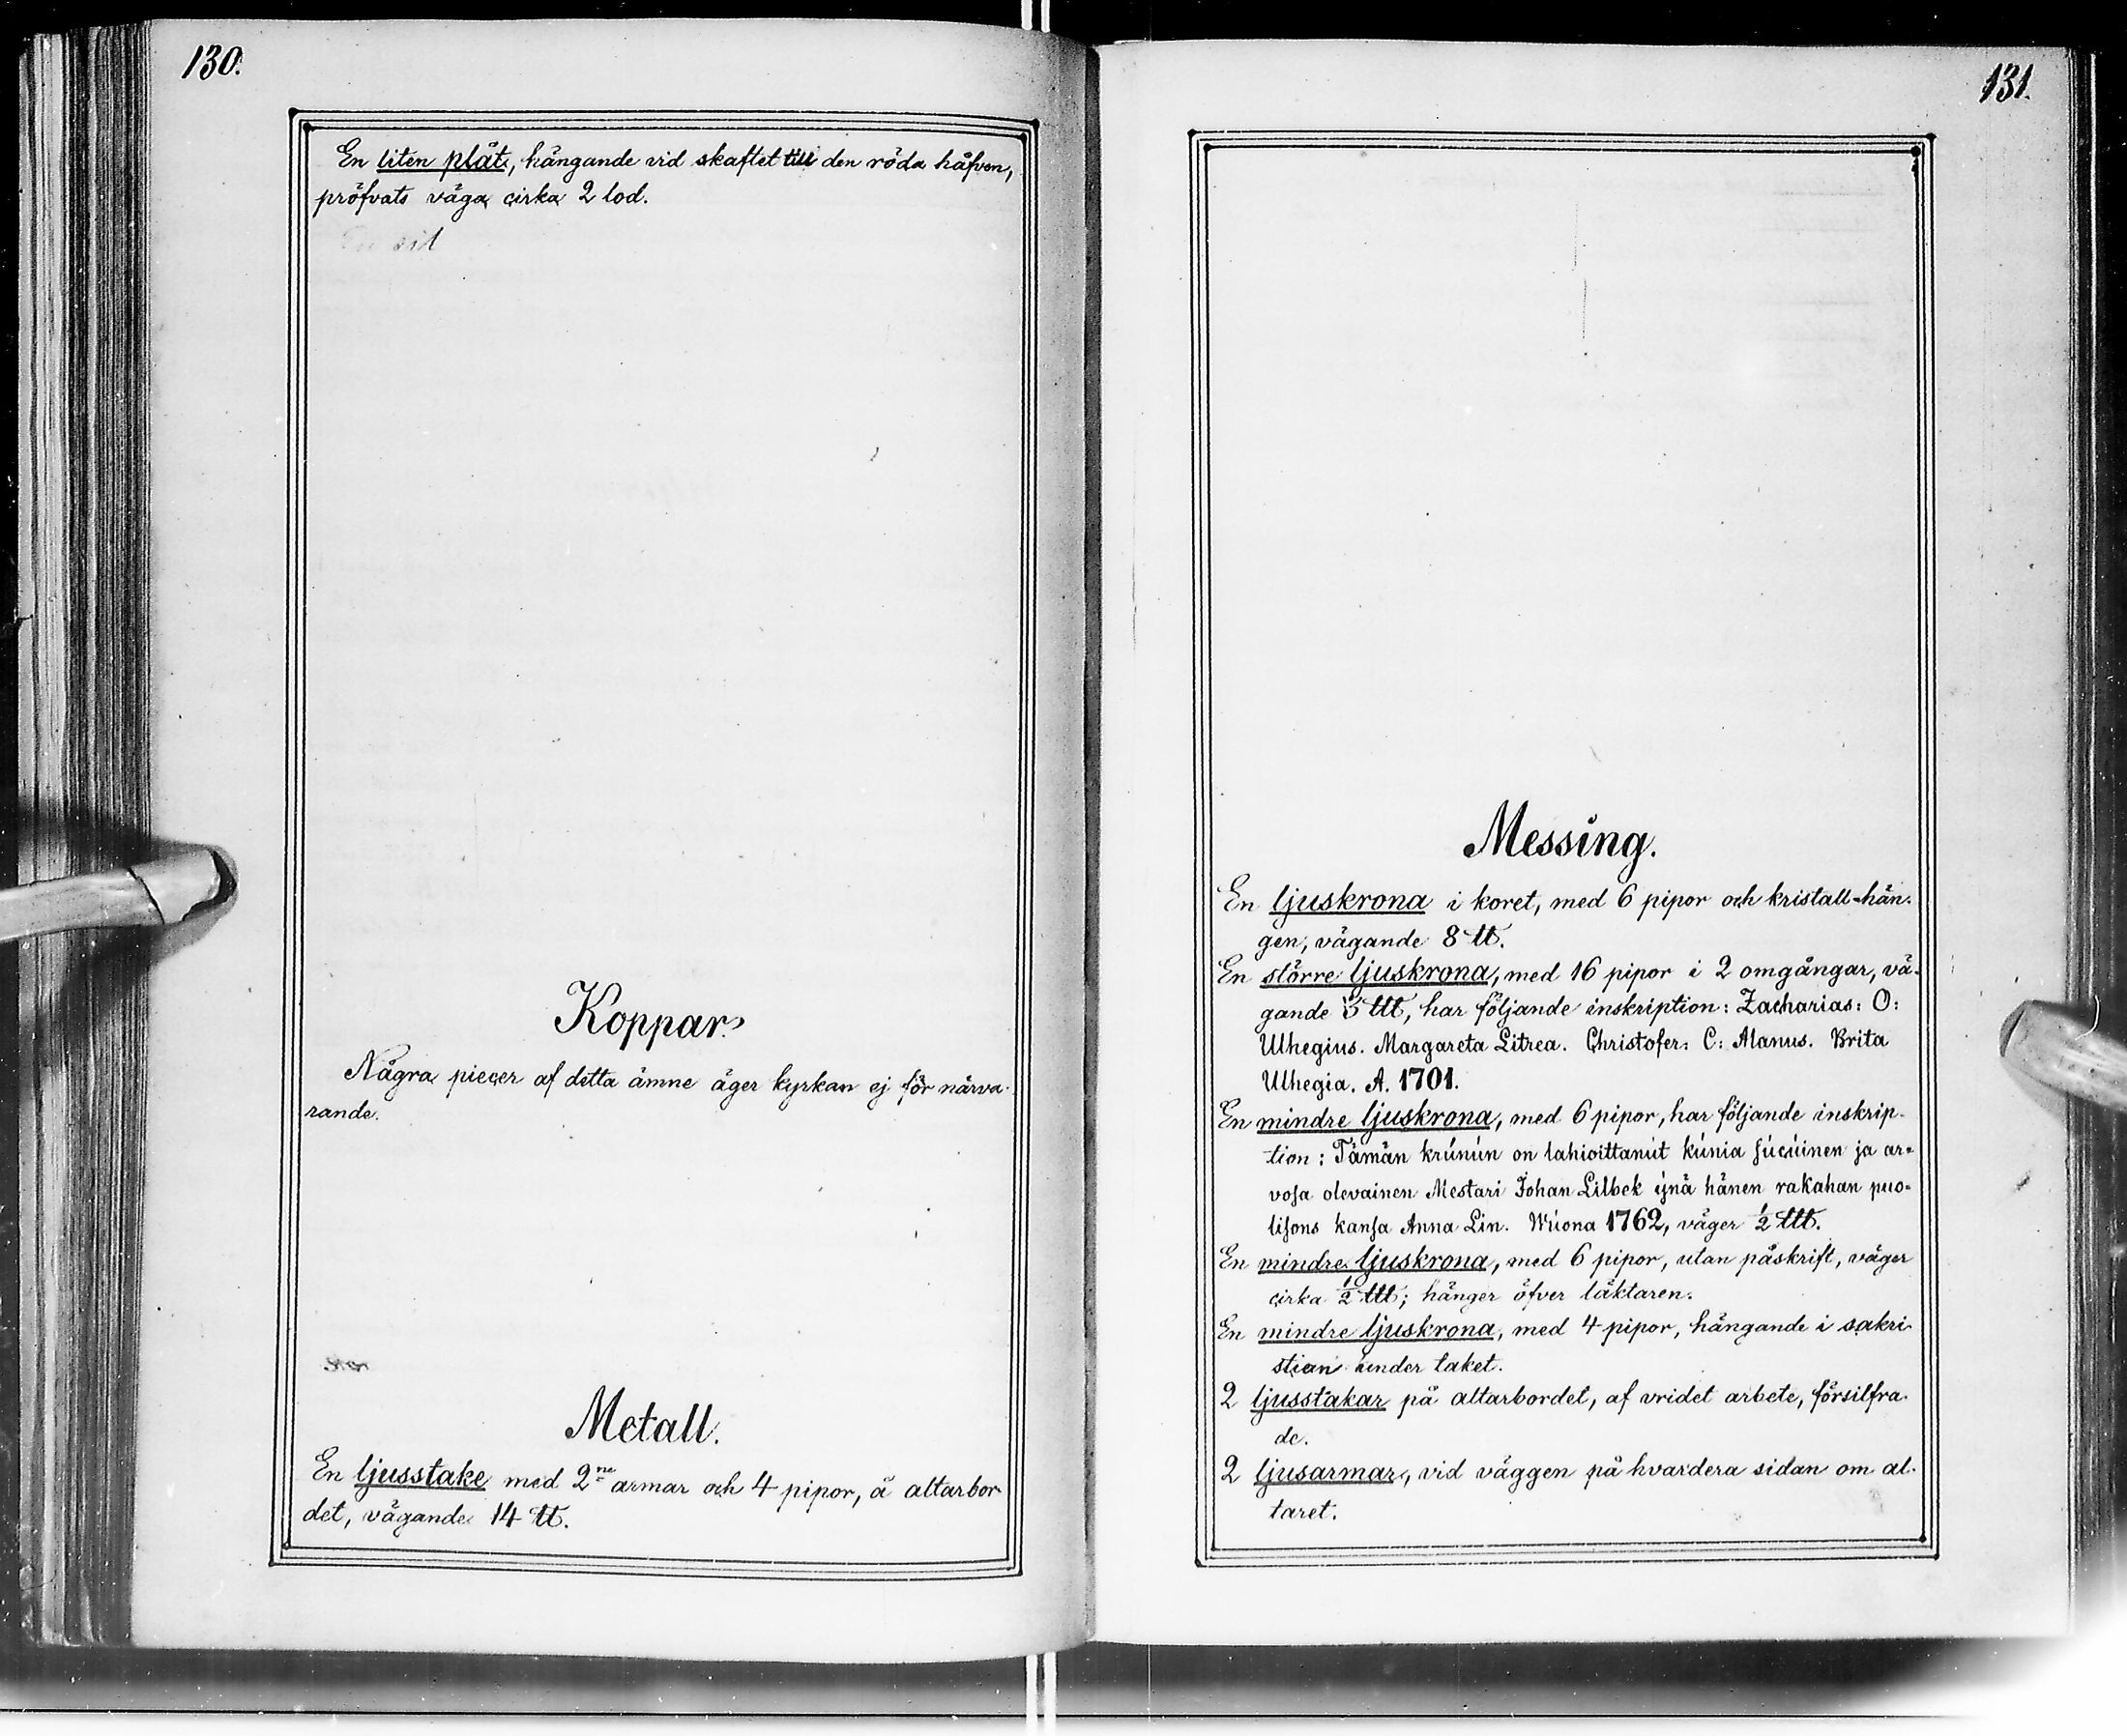 130.
En liten plåt, hängande vid skaftet till den röda håfven,
pröfvats väga cirka 2 lod.
Koppar.
Några piecer af detta ämne äger kyrkan ej för närva-
rande.
Metall.
En ljusstake med 2ne armar och 4 pipor, å altarbor-
det, vägande 14 ℔.
131.
Messing.
En ljuskrona i koret, med 6 pipor och kristall-hän-
gen, vägande 8 ℔.
En större ljuskrona, med 16 pipor i 2 omgångar, vä-
gande 3 L℔, har följande inskription: Zacharias: O:
Ulhegius. Margareta Litrea. Christofer: C: Alanus. Brita
Ulhegia. A. 1701.
En mindre ljuskrona, med 6 pipor, har följande inskrip-
tion: Tämän krúnún on lahioittanút kúnia súcúinen ja ar-
vosa olevainen Mestari Johan Lilbek ÿnä hänen rakahan puo-
lisons kansa Anna Lin. Wúona 1762, väger ½ L℔.
En mindre ljuskrona, med 6 pipor, utan påskrift, väger
cirka ½ L℔; hänger öfver läktaren.
En mindre ljuskrona, med 4 pipor, hängande i sakri-
stian under taket.
2 ljusstakar på altarbordet, af vridet arbete, försilfra-
de.
2 ljusarmar, vid väggen på hvardera sidan om al-
taret.